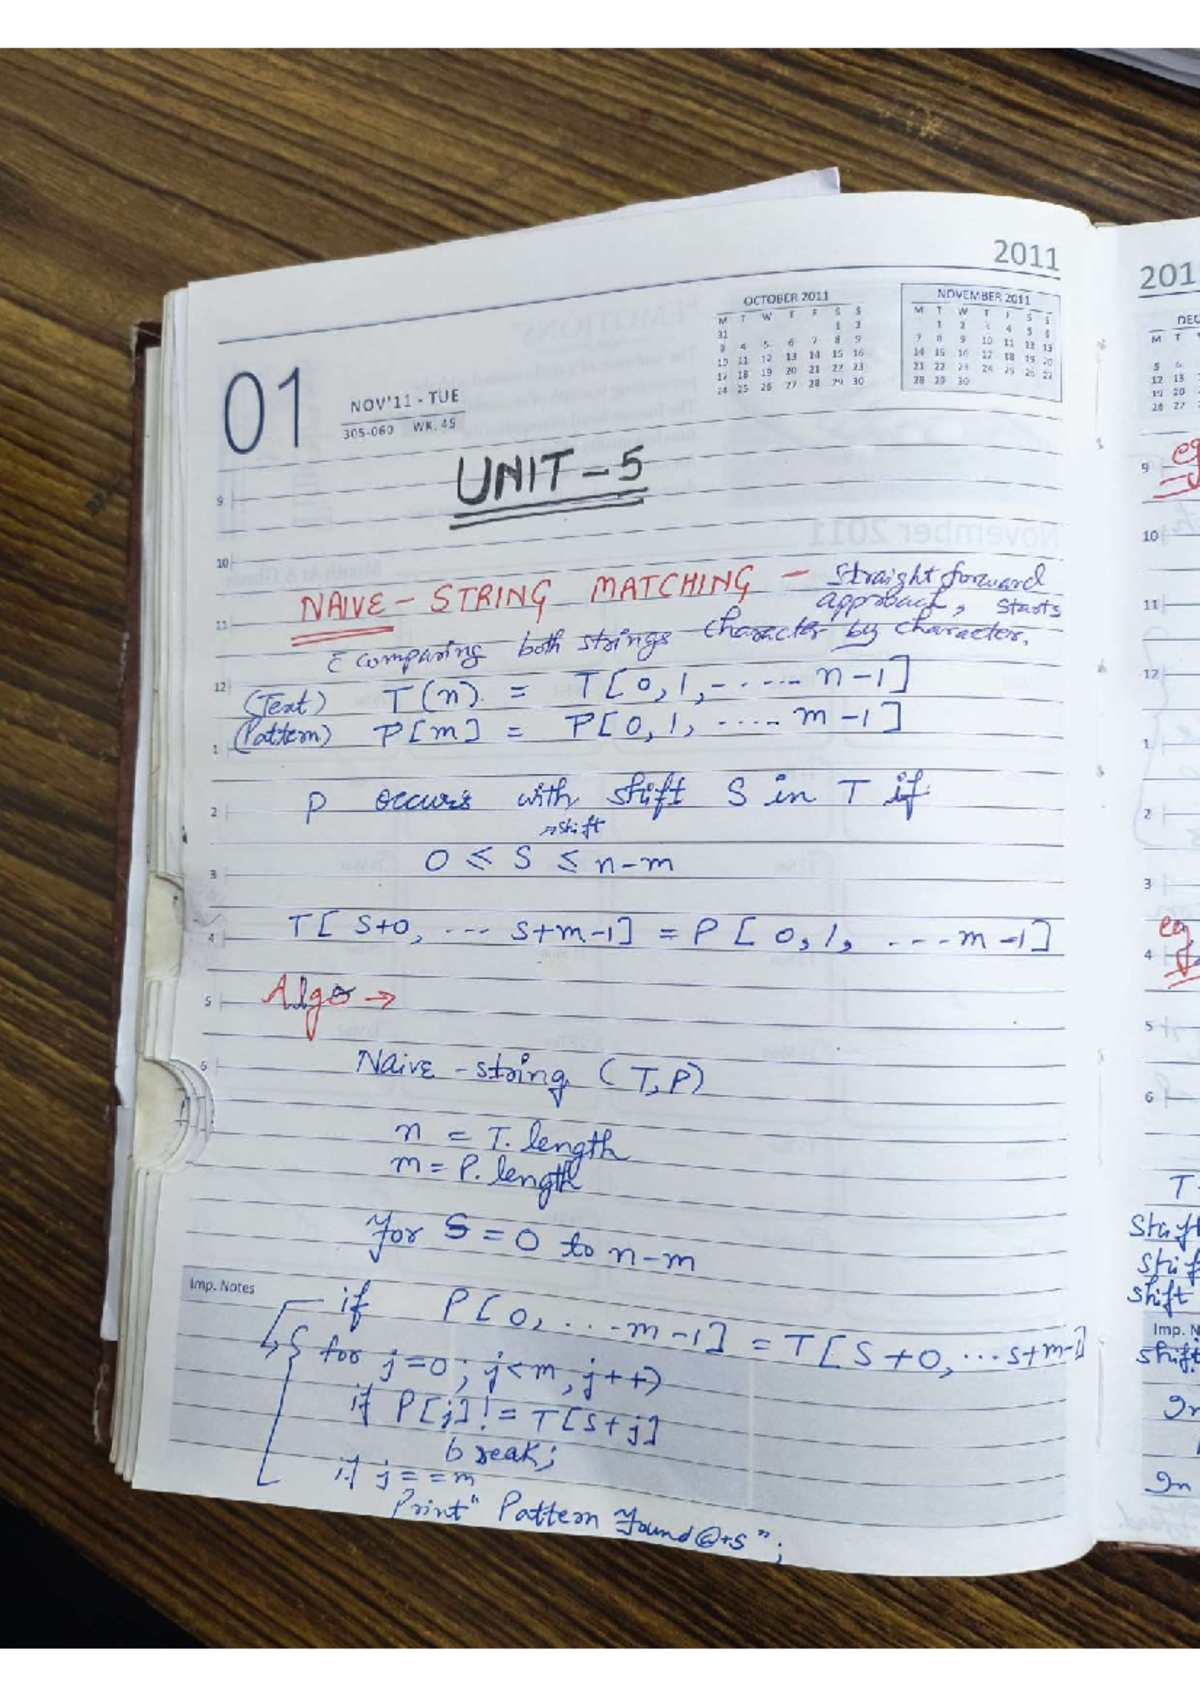 2011
OCTOBER 2011
M T W T F S S
31 1 2
3 4 5 6 7 8 9
10 11 12 13 14 15 16
17 18 19 20 21 22 23
24 25 26 27 28 29 30
NOVEMBER 2011
M T W T F S S
1 2 3 4 5 6
7 8 9 10 11 12 13
14 15 16 17 18 19 20
21 22 23 24 25 26 27
28 29 30
01
NOV'11 - TUE
305-060 WK. 45
UNIT-5
NAIVE - STRING MATCHING - Straight forward
approach, starts
comparing both strings character by character.
(Text) T(n) = T[0,1,-.....n-1]
(Pattern) P[m] = P[0,1,.....m-1]
P occurs with shift S in T if
→shift
0 ≤ S ≤ n-m
T[S+0, ... S+m-1] = P[0,1, ...m-1]
Algo →
Naive-string (T,P)
n = T.length
m = P.length
for S = 0 to n-m
Imp. Notes
if P[0,...m-1] = T[S+0,...s+m-1]
{ for j=0; j<m, j++)
if P[j]!= T[S+j]
break;
if j==m
Print" Pattern found@+s";
201
DEC
M T
5 6
12 13
19 20
26 27
eg
T
Shift
Shift
Imp. N
Shift
In